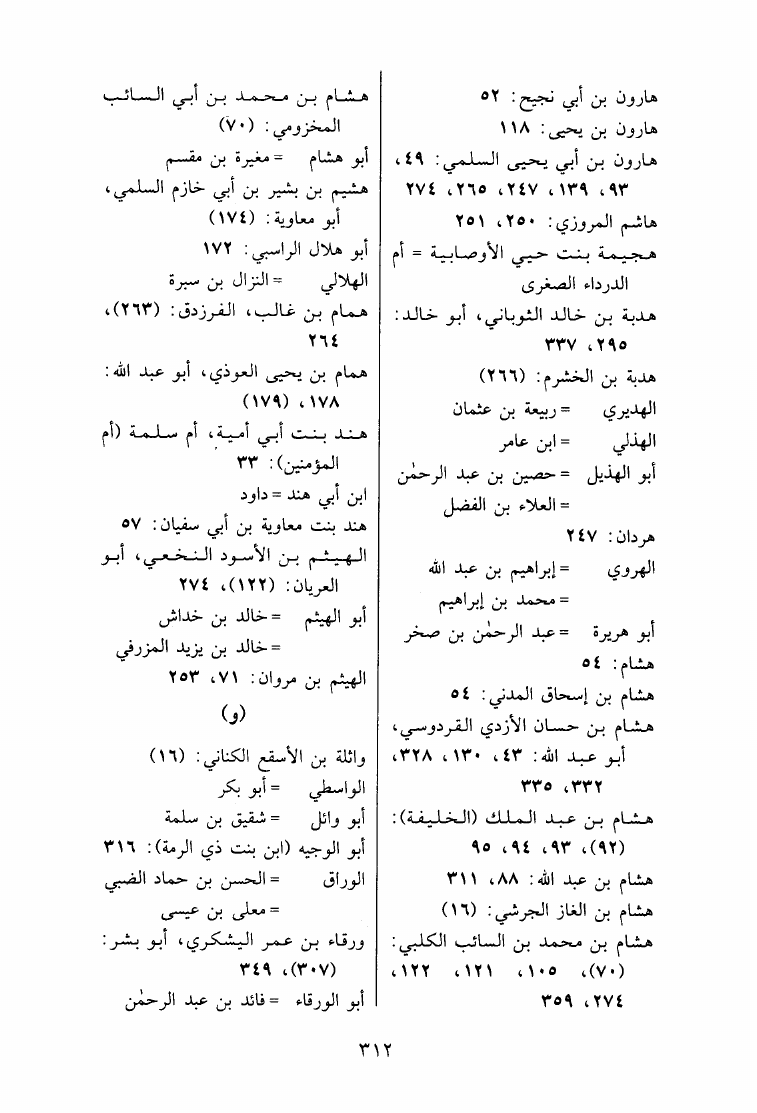 هارون بن أبي نجيح: ٥٢
هارون بن يحيى: ١١٨
هارون بن أبي يحيى السلمي: ٤٩،
٩٣، ١٣٩، ٢٤٧، ٢٦٥، ٢٧٤
هاشم المروزي: ٢٥٠، ٢٥١
هجيمة بنت حيي الأوصابية = أم
الدرداء الصغرى
هدبة بن خالد الثوباني، أبو خالد:
٢٩٥، ٣٣٧
هدبة بن الخشرم: (٢٦٦)
الهديري = ربيعة بن عثمان
الهذلي = ابن عامر
أبو الهذيل = حصين بن عبد الرحمٰن
= العلاء بن الفضل
هردان: ٢٤٧
الهروي = إبراهيم بن عبد الله
= محمد بن إبراهيم
أبو هريرة = عبد الرحمٰن بن صخر
هشام: ٥٤
هشام بن إسحاق المدني: ٥٤
هشام بن حسان الأزدي القردوسي،
أبو عبد الله: ٤٣، ١٣٠، ٣٢٨،
٣٣٢، ٣٣٥
هشام بن عبد الملك (الخليفة):
(٩٢)، ٩٣، ٩٤، ٩٥
هشام بن عبد الله: ٨٨، ٣١١
هشام بن الغاز الجرشي: (١٦)
هشام بن محمد بن السائب الكلبي:
(٧٠)، ١٠٥، ١٢١، ١٢٢،
٢٧٤، ٣٥٩
هشام بن محمد بن أبي السائب
المخزومي: (٧٠)
أبو هشام = مغيرة بن مقسم
هشيم بن بشير بن أبي خازم السلمي،
أبو معاوية: (١٧٤)
أبو هلال الراسبي: ١٧٢
الهلالي = النزال بن سبرة
همام بن غالب، الفرزدق: (٢٦٣)،
٢٦٤
همام بن يحيى العوذي، أبو عبد الله:
١٧٨، (١٧٩)
هند بنت أبي أمية، أم سلمة (أم
المؤمنين): ٣٣
ابن أبي هند = داود
هند بنت معاوية بن أبي سفيان: ٥٧
الهيثم بن الأسود النخعي، أبو
العريان: (١٢٢)، ٢٧٤
أبو الهيثم = خالد بن خداش
= خالد بن يزيد المزرفي
الهيثم بن مروان: ٧١، ٢٥٣
(و)
واثلة بن الأسقع الكناني: (١٦)
الواسطي = أبو بكر
أبو وائل = شقيق بن سلمة
أبو الوجيه (ابن بنت ذي الرمة): ٣١٦
الوراق = الحسن بن حماد الضبي
= معلى بن عيسى
ورقاء بن عمر اليشكري، أبو بشر:
(٣٠٧)، ٣٤٩
أبو الورقاء = فائد بن عبد الرحمٰن
٣١٢